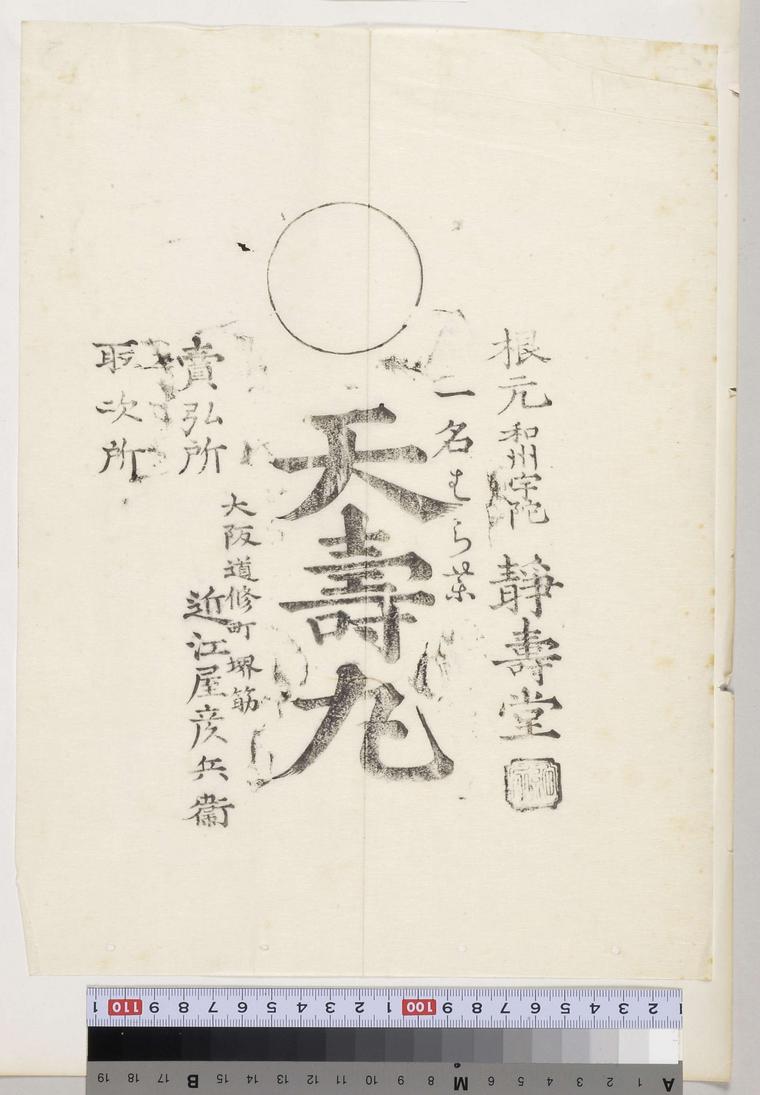 根元 和州宇陀 靜壽堂
一名 むら薬
天壽丸
大阪道修町堺筋
賣弘所 近江屋彦兵衞
取次所
1 110 9 8 7 6 5 4 3 2 1 100 9 8 7 6 5 4 3 2 1
19 18 17 B 15 14 13 12 11 10 9 8 M 6 5 4 3 2 1 A